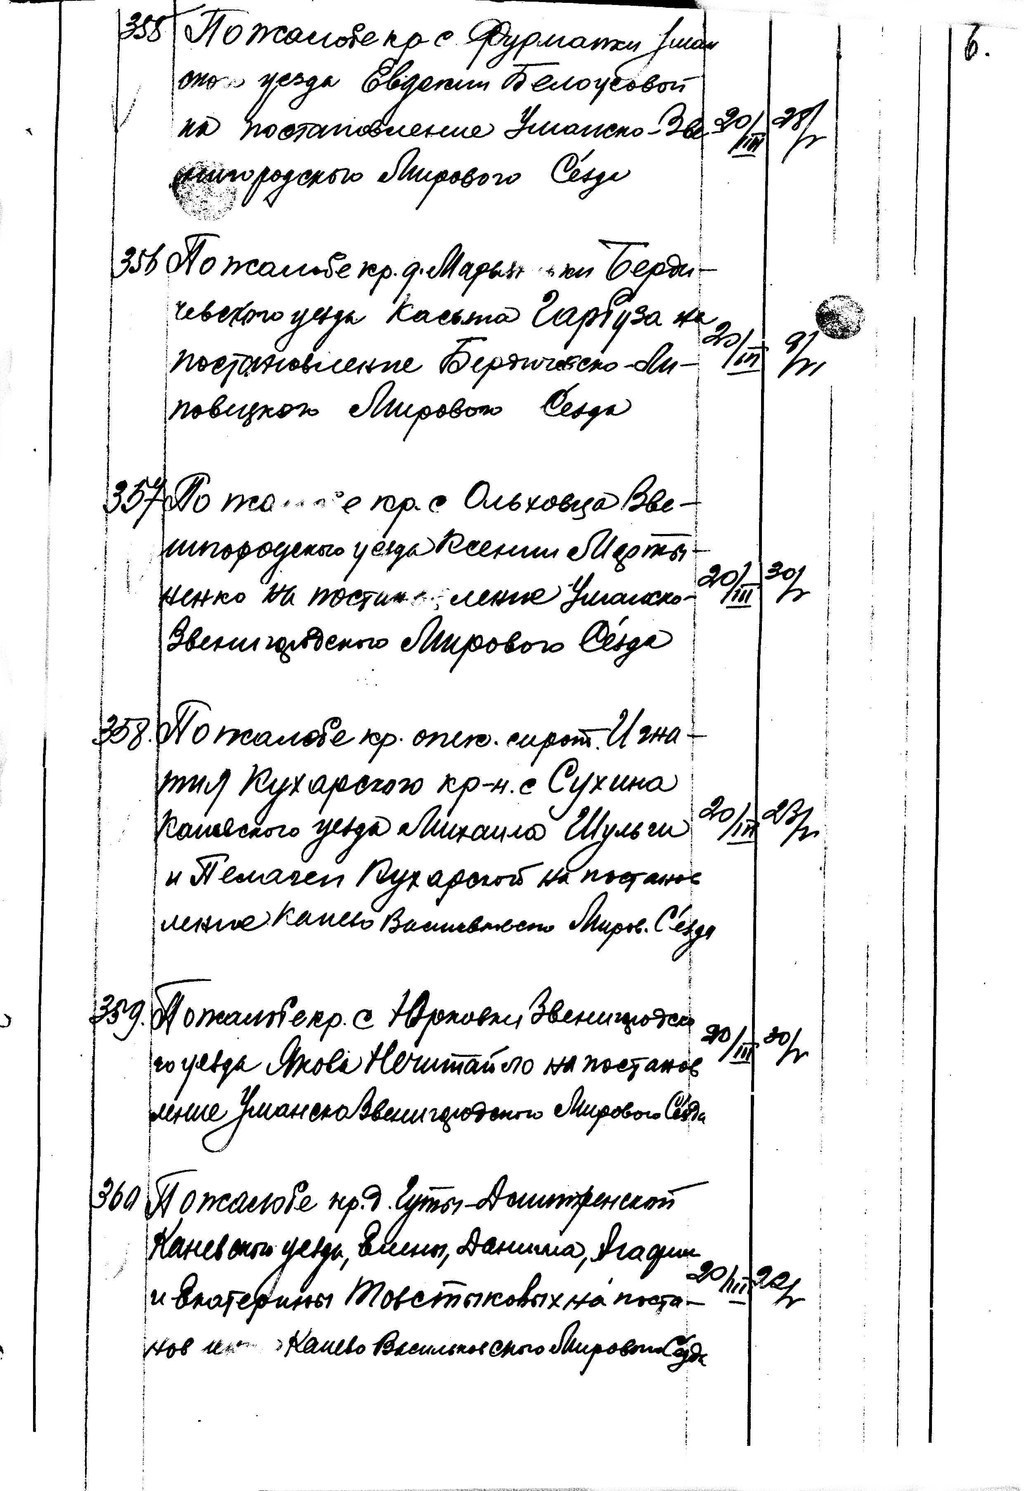 6.
355 По жалобе кр. с. Фурманки Уман
ского уезда Евдокии Белоусовой
на постановление Уманско-Зве 20/III 28/V
нигородского Мирового Сезда
356 По жалобе кр. д. Марья ки Берди-
чевского уезда Касьяна Гарбуза на
постановление Бердичевско-Ли- 20/III
повецкого Мирового Сезда
357 По жа е кр. с Ольховца Зве-
нигородского уезда Ксении Марты-
ненко на постан ление Уманско- 20/III 30/V
Звенигородского Мирового Сезда
358. По жалобе кр. опек. сирот. Игна-
тия Кухарского кр-н. с Сухина
Каневского уезда Михаила Шульги 20/III 23/V
и Пелагеи Кухарской на постанов
ление Канево Васильковского Миров. Сезда
359. По жалобе кр. с Юрковки Звенигородско
го уезда Якова Нечитайло на постанов 20/III 30/V
ление Уманско Звенигородского Мирового Сезда
360 По жалобе кр. д. Гуты-Дмитренской
Каневского уезда, Елены, Данила, Агафии
и Екатерины Товстыковых на поста- 20/III 22/V
нов Канево Васильковского Мирового Сезда